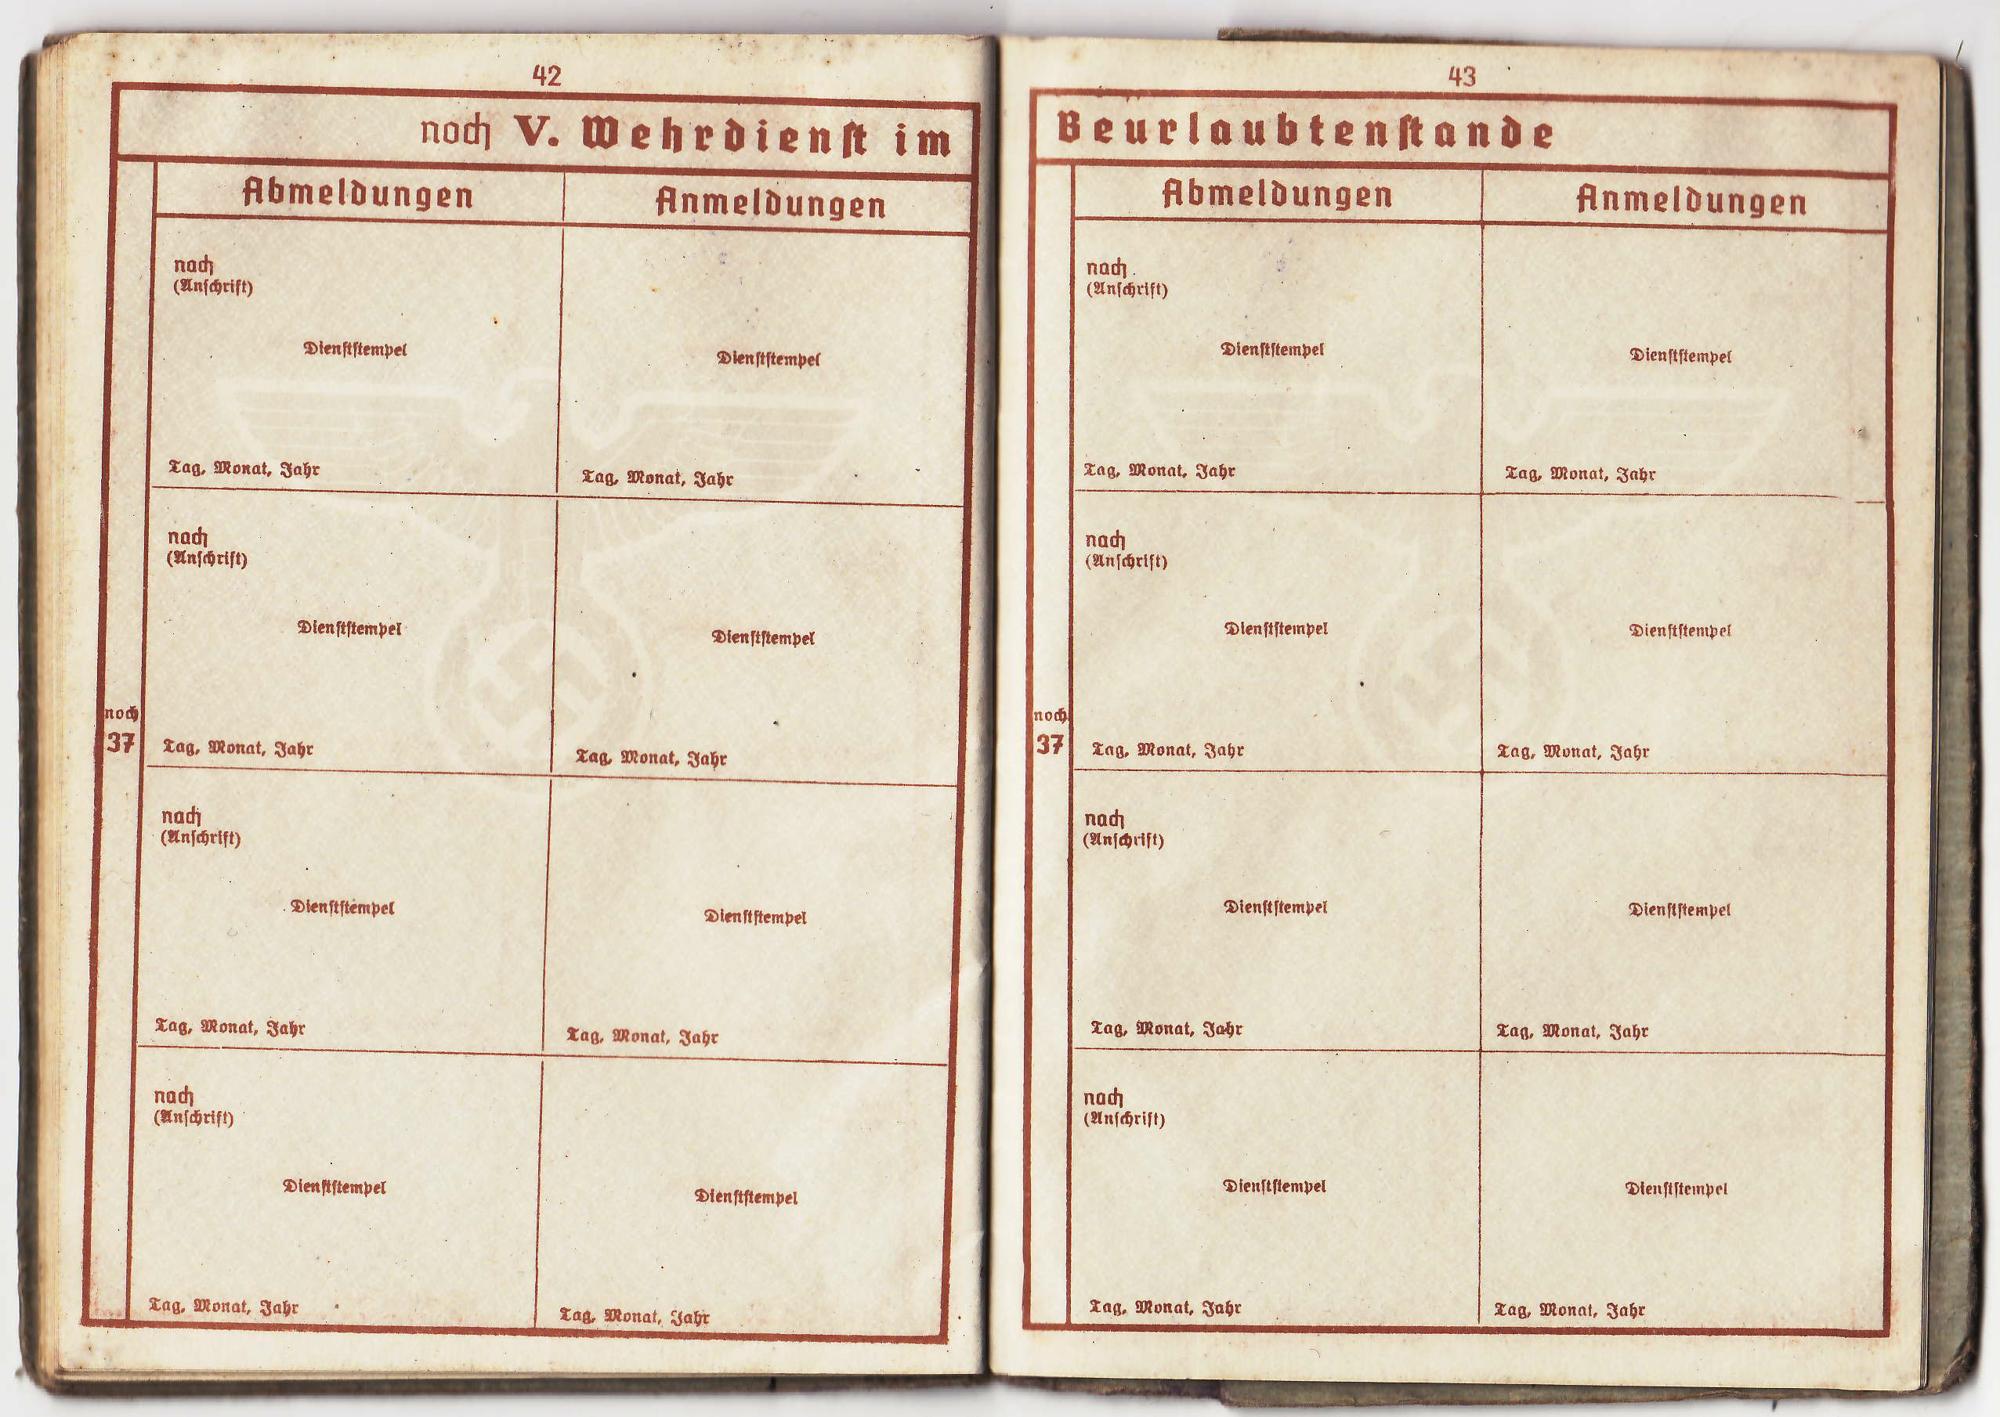 42
noch V. Wehrdienst im
Abmeldungen Anmeldungen
nach
(Anschrift)
Dienststempel Dienststempel
Tag, Monat, Jahr Tag, Monat, Jahr
nach
(Anschrift)
Dienststempel Dienststempel
noch
37
Tag, Monat, Jahr Tag, Monat, Jahr
nach
(Anschrift)
Dienststempel Dienststempel
Tag, Monat, Jahr Tag, Monat, Jahr
nach
(Anschrift)
Dienststempel Dienststempel
Tag, Monat, Jahr Tag, Monat, Jahr
43
Beurlaubtenstande
Abmeldungen Anmeldungen
nach
(Anschrift)
Dienststempel Dienststempel
Tag, Monat, Jahr Tag, Monat, Jahr
nach
(Anschrift)
Dienststempel Dienststempel
noch
37
Tag, Monat, Jahr Tag, Monat, Jahr
nach
(Anschrift)
Dienststempel Dienststempel
Tag, Monat, Jahr Tag, Monat, Jahr
nach
(Anschrift)
Dienststempel Dienststempel
Tag, Monat, Jahr Tag, Monat, Jahr